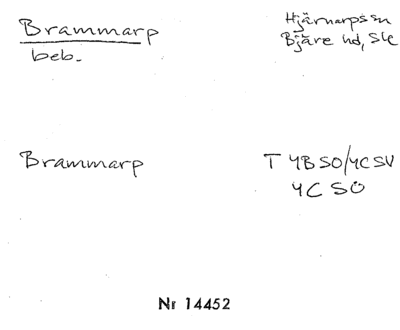 Brammarp
beb.
Hjärnarps sn
Bjäre hd, Sk
Brammarp
T 4B SO/4C SV
4C SO
Nr 14452